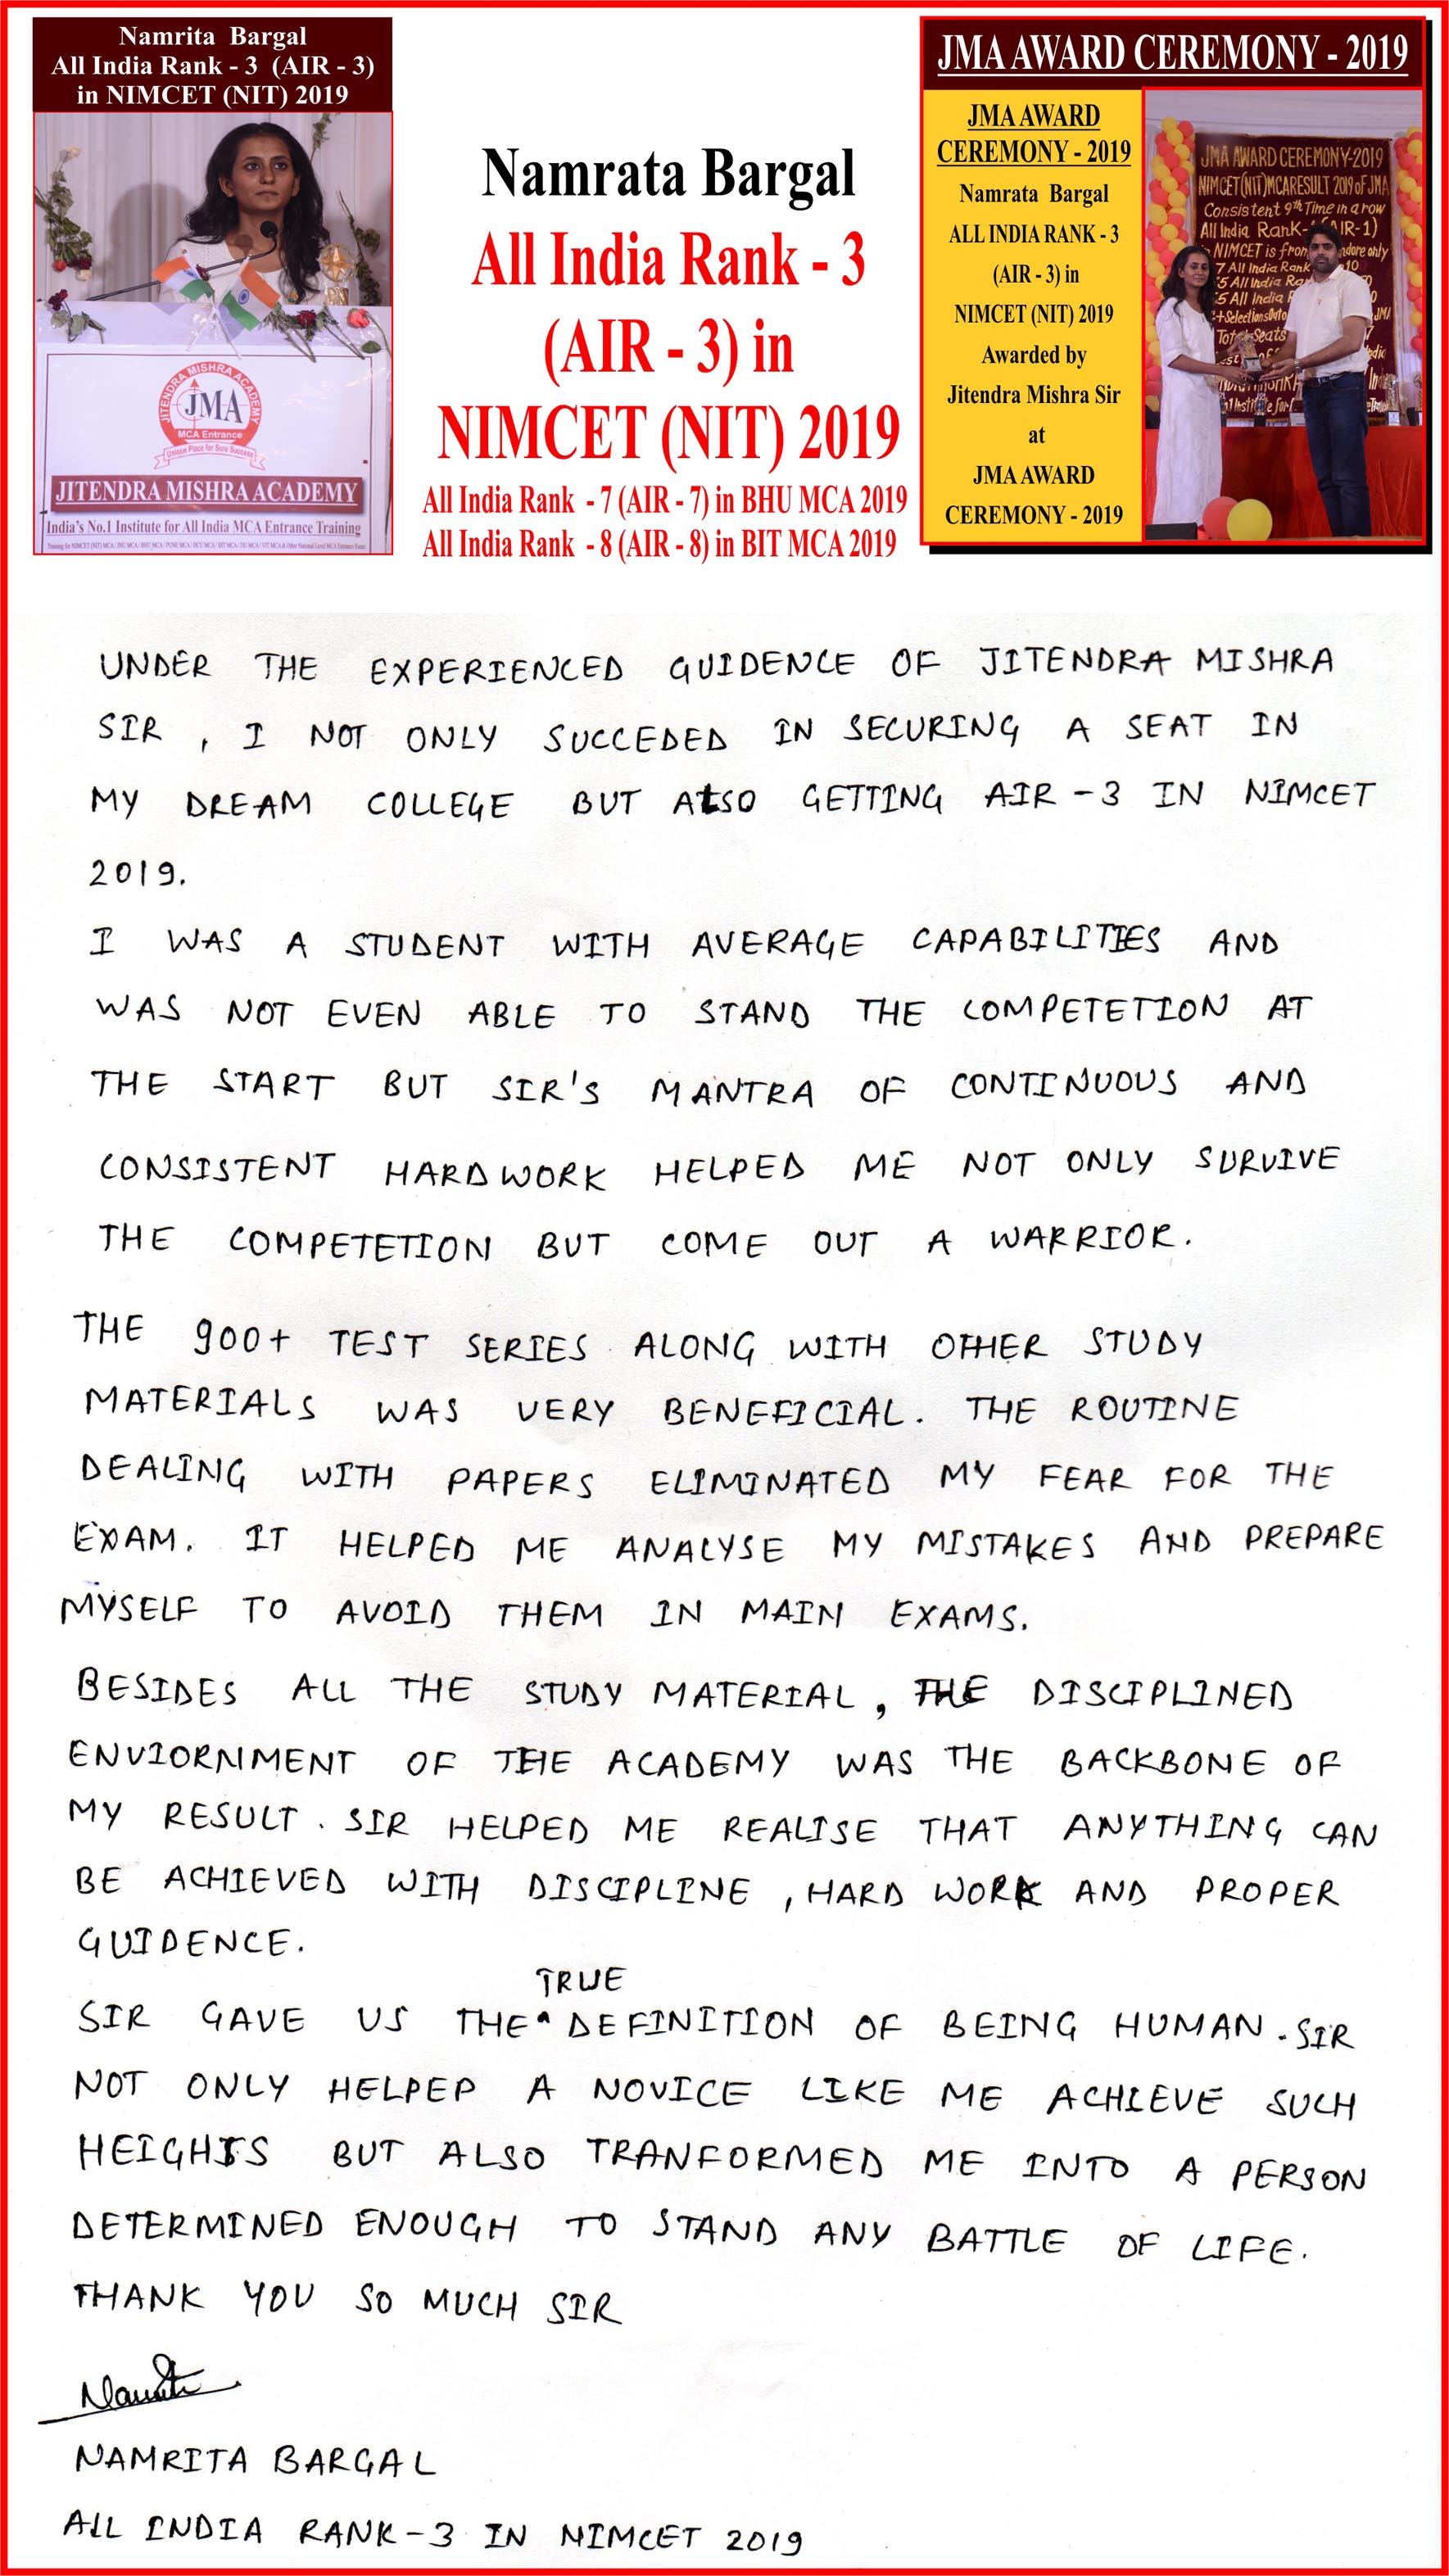 Namrita Bargal
All India Rank - 3 (AIR - 3)
in NIMCET (NIT) 2019
JITENDRA MISHRA ACADEMY
JMA
MCA Entrance
Unique Place for Sure Success
JITENDRA MISHRA ACADEMY
India's No.1 Institute for All India MCA Entrance Training
Namrata Bargal
All India Rank - 3
(AIR - 3) in
NIMCET (NIT) 2019
All India Rank - 7 (AIR - 7) in BHU MCA 2019
All India Rank - 8 (AIR - 8) in BIT MCA 2019
JMA AWARD CEREMONY - 2019
JMA AWARD
CEREMONY - 2019
Namrata Bargal
ALL INDIA RANK - 3
(AIR - 3) in
NIMCET (NIT) 2019
Awarded by
Jitendra Mishra Sir
at
JMA AWARD
CEREMONY - 2019
JMA AWARD CEREMONY-2019
NIMCET(NIT)MCA RESULT 2019 OF JMA
Consistent 9th Time in a row
All India Rank- (AIR-1)
NIMCET is from only
7 All India Rank 10
5 All India
5 All India
UNDER THE EXPERIENCED GUIDENCE OF JITENDRA MISHRA
SIR , I NOT ONLY SUCCEDED IN SECURING A SEAT IN
MY DREAM COLLEGE BUT ALSO GETTING AIR - 3 IN NIMCET
2019.
I WAS A STUDENT WITH AVERAGE CAPABILITIES AND
WAS NOT EVEN ABLE TO STAND THE COMPETETION AT
THE START BUT SIR'S MANTRA OF CONTINUOUS AND
CONSISTENT HARDWORK HELPED ME NOT ONLY SURVIVE
THE COMPETETION BUT COME OUT A WARRIOR.
THE 900+ TEST SERIES ALONG WITH OTHER STUDY
MATERIALS WAS VERY BENEFICIAL. THE ROUTINE
DEALING WITH PAPERS ELIMINATED MY FEAR FOR THE
EXAM. IT HELPED ME ANALYSE MY MISTAKES AND PREPARE
MYSELF TO AVOID THEM IN MAIN EXAMS.
BESIDES ALL THE STUDY MATERIAL, THE DISCIPLINED
ENVIORNMENT OF THE ACADEMY WAS THE BACKBONE OF
MY RESULT. SIR HELPED ME REALISE THAT ANYTHING CAN
BE ACHIEVED WITH DISCIPLINE , HARD WORK AND PROPER
GUIDENCE.
TRUE
SIR GAVE US THE DEFINITION OF BEING HUMAN. SIR
NOT ONLY HELPEP A NOVICE LIKE ME ACHIEVE SUCH
HEIGHTS BUT ALSO TRANFORMED ME INTO A PERSON
DETERMINED ENOUGH TO STAND ANY BATTLE OF LIFE.
THANK YOU SO MUCH SIR
NAMRITA BARGAL
ALL INDIA RANK-3 IN NIMCET 2019